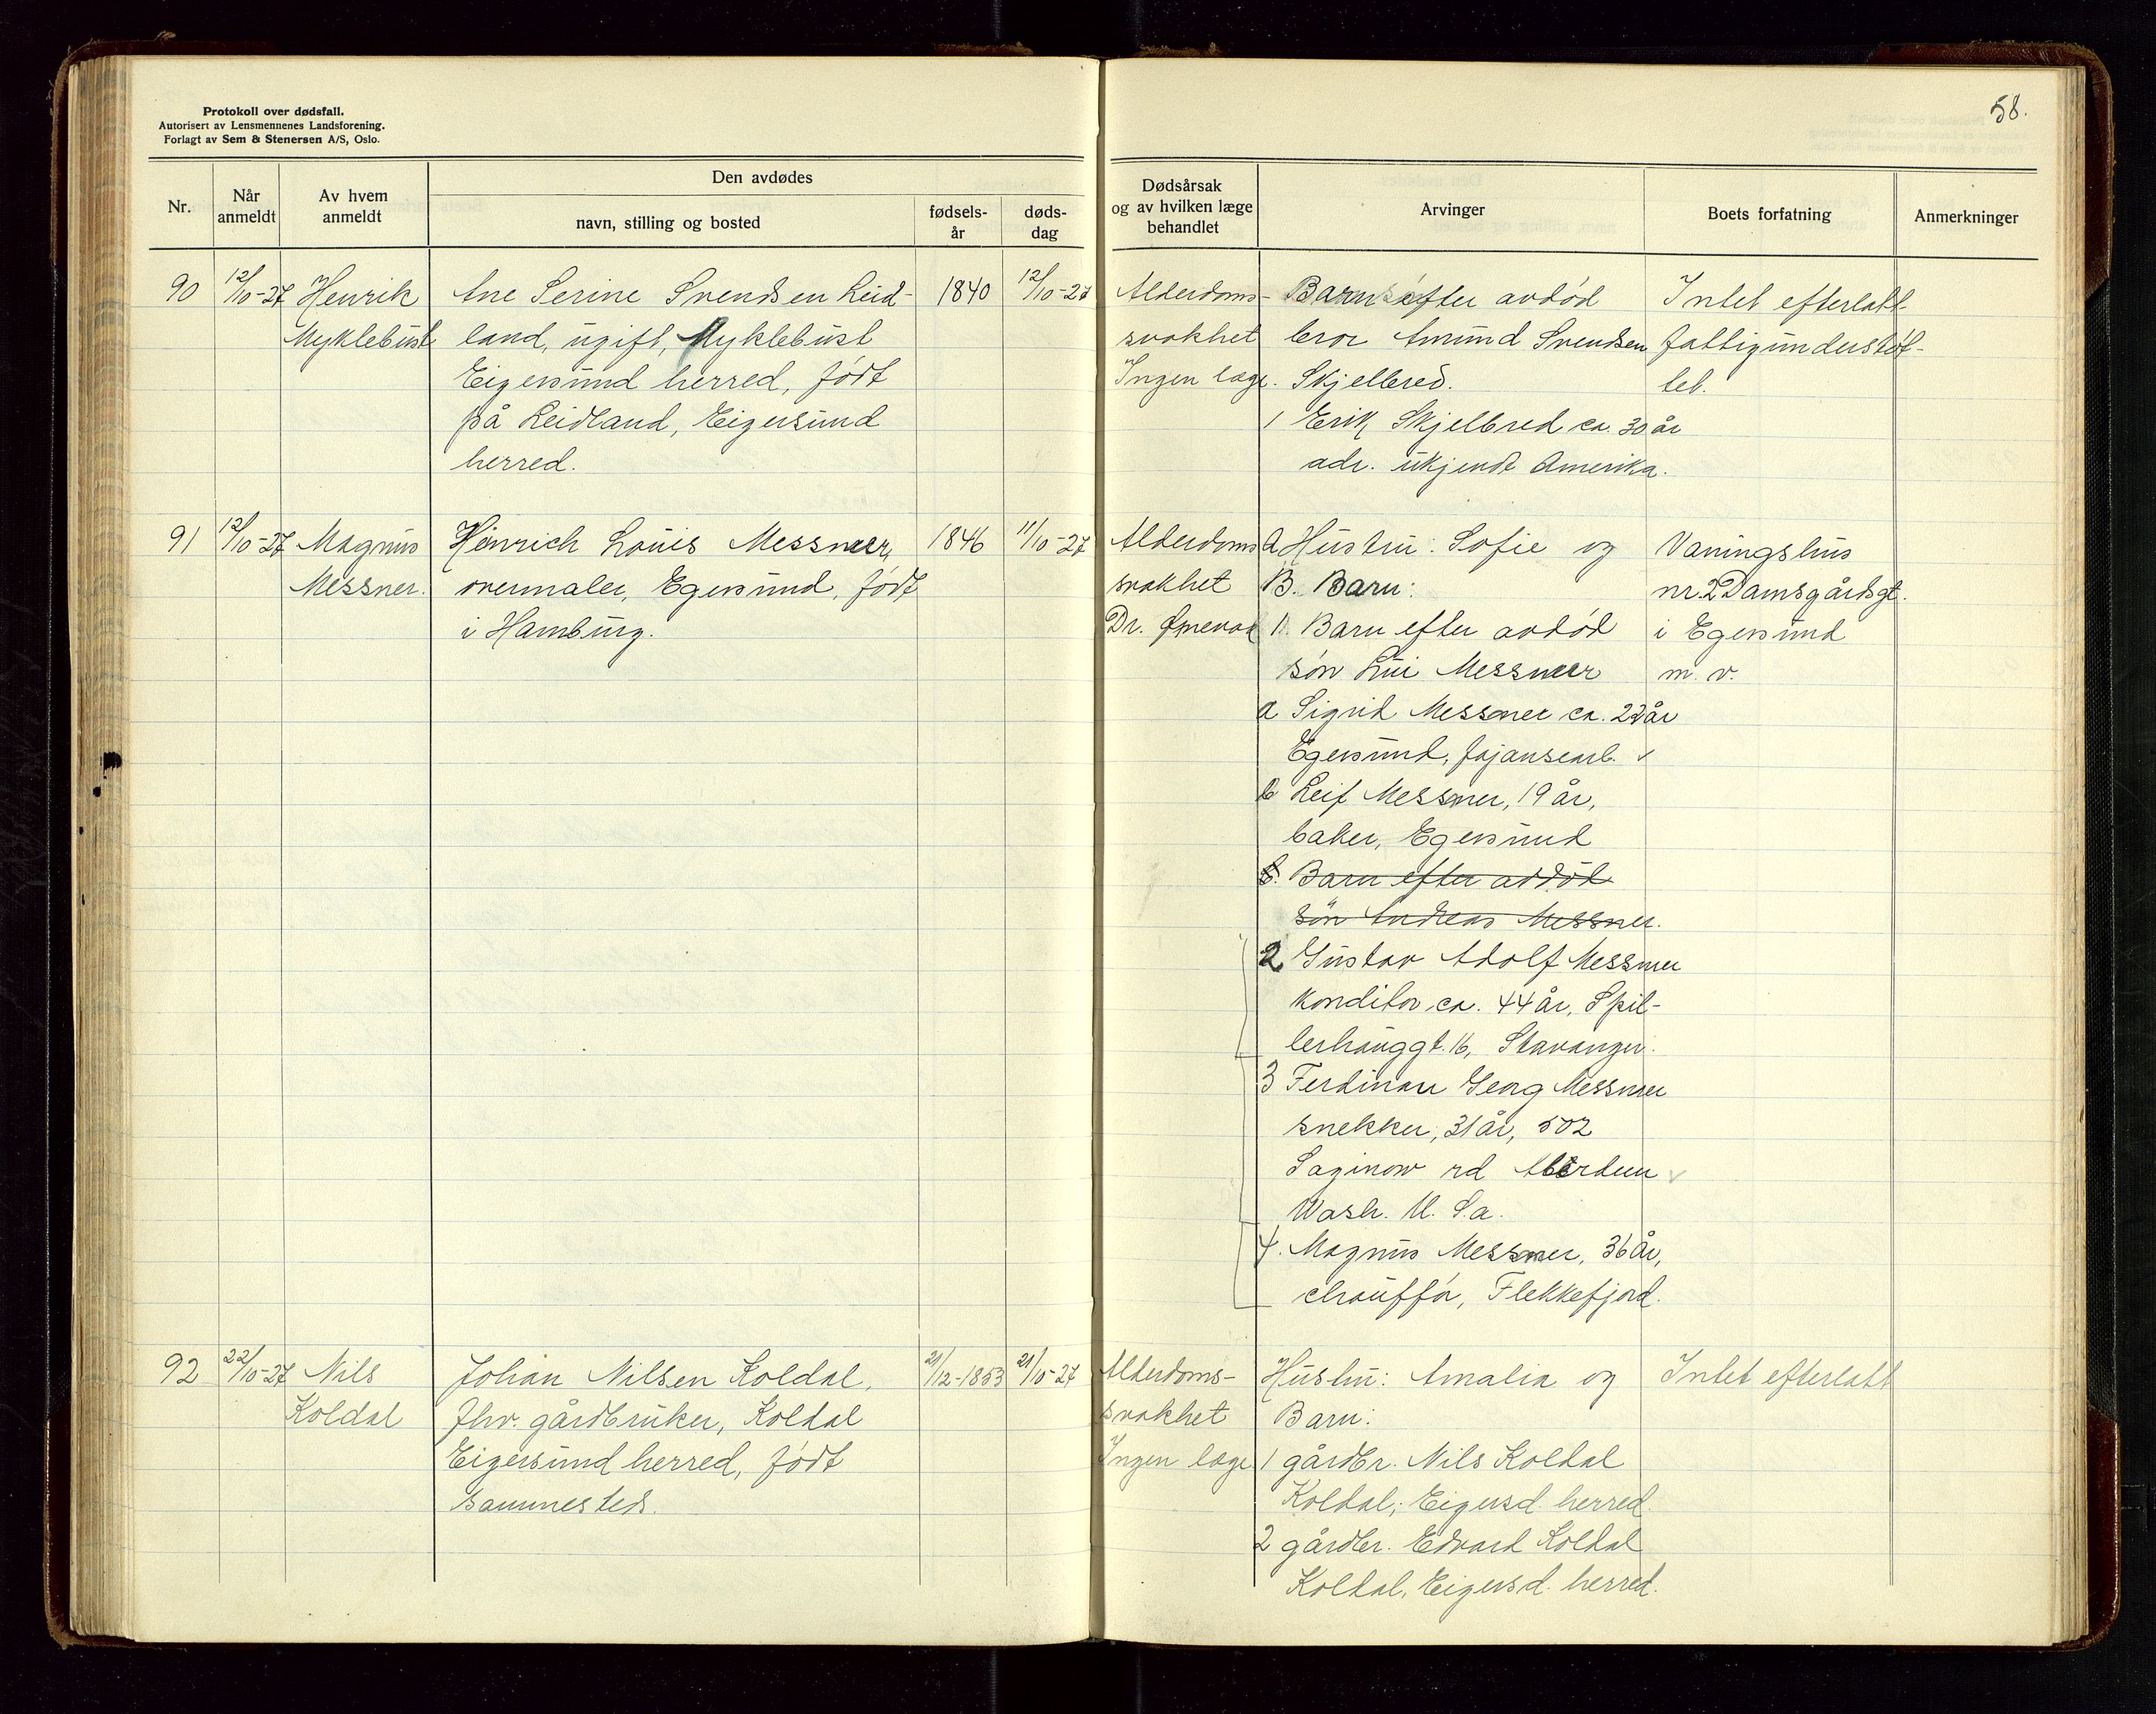 Protokoll over dødsfall.
Autorisert av Lensmennenes Landsforening.
Forlagt av Sem & Stenersen A/S, Oslo.
58.
Nr.
Når anmeldt
Av hvem anmeldt
Den avdødes
navn, stilling og bosted
fødsels-år
døds-dag
Dødsårsak og av hvilken læge behandlet
Arvinger
Boets forfatning
Anmerkninger
90
12/10-27
Henrik
Myklebust
Ane Serine Svendsen Leid-
land, ugift, Myklebust
Eigersund herred, født
på Leidland, Eigersund
herred.
1840
12/10-27
Alderdoms-
svakhet
Ingen læge.
Barn efter avdød
bror Amund Svendsen
Skjelbred.
1 Erik Skjelbred ca. 30 år
adr. ukjendt Amerika.
Intet efterlatt
fattigunderstøt-
tet.
91
12/10-27
Magnus
Messner.
Hinrich Louis Messner,
overmaler, Egersund, født
i Hamburg.
1846
11/10-27
Alderdoms
svakhet
Dr.
A Hustru: Sofie og
B. Barn:
1. Barn efter avdød
søn Lui Messner
a Sigrid Messner ca. 22 år
Egersund, fajansearb. ✓
b Leif Messner, 19 år,
baker, Egersund
Barn efter avdød
søn Andreas Messner.
2 Gustav Adolf Messner
konditor ca. 44 år, Spil-
lerhauggt. 16, Stavanger.
3 Ferdinan Georg Messner
snekker, 31 år, 502
Saginow rd Aberdeen ✓
Wash. U. S. a.
4. Magnus Messner, 36 år,
chauffør, Flekkefjord.
Vaningshus
nr. 2 Damsgårdsgt.
i Egersund
m. v.
92
22/10-27
Nils
Koldal
Johan Nilsen Koldal,
fhv. gårdbruker, Koldal
Eigersund herred, født
sammesteds.
21/12-1853
21/10-27
Alderdoms-
svakhet
Ingen læge
Hustru: Amalia og
Barn:
1 gårdbr. Nils Koldal
Koldal, Eigersd. herred.
2 gårdbr. Edvard Koldal
Koldal, Eigersd. herred.
Intet efterlatt